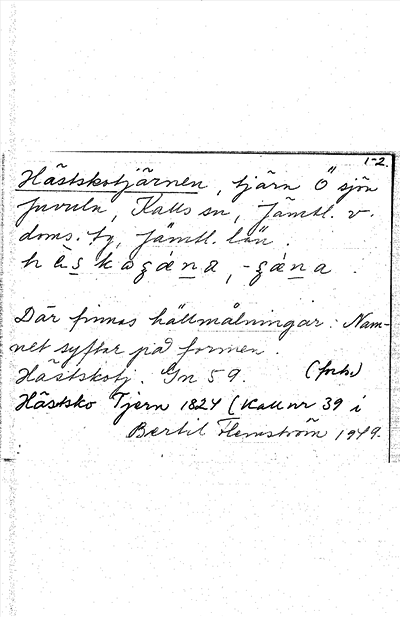 1-2.
Hästskotjärnen, tjärn Ö sjön
Juvuln, Kalls sn, Jämtl. v.
doms. tg, Jämtl. län.
Där finnas hällmålningar. Nam-
net syftar på formen.
Hästskotj. Gn 59. (forts.)
Hästsko Tjern 1824 (Kall nr 39 i
Bertil Flemström 1949.